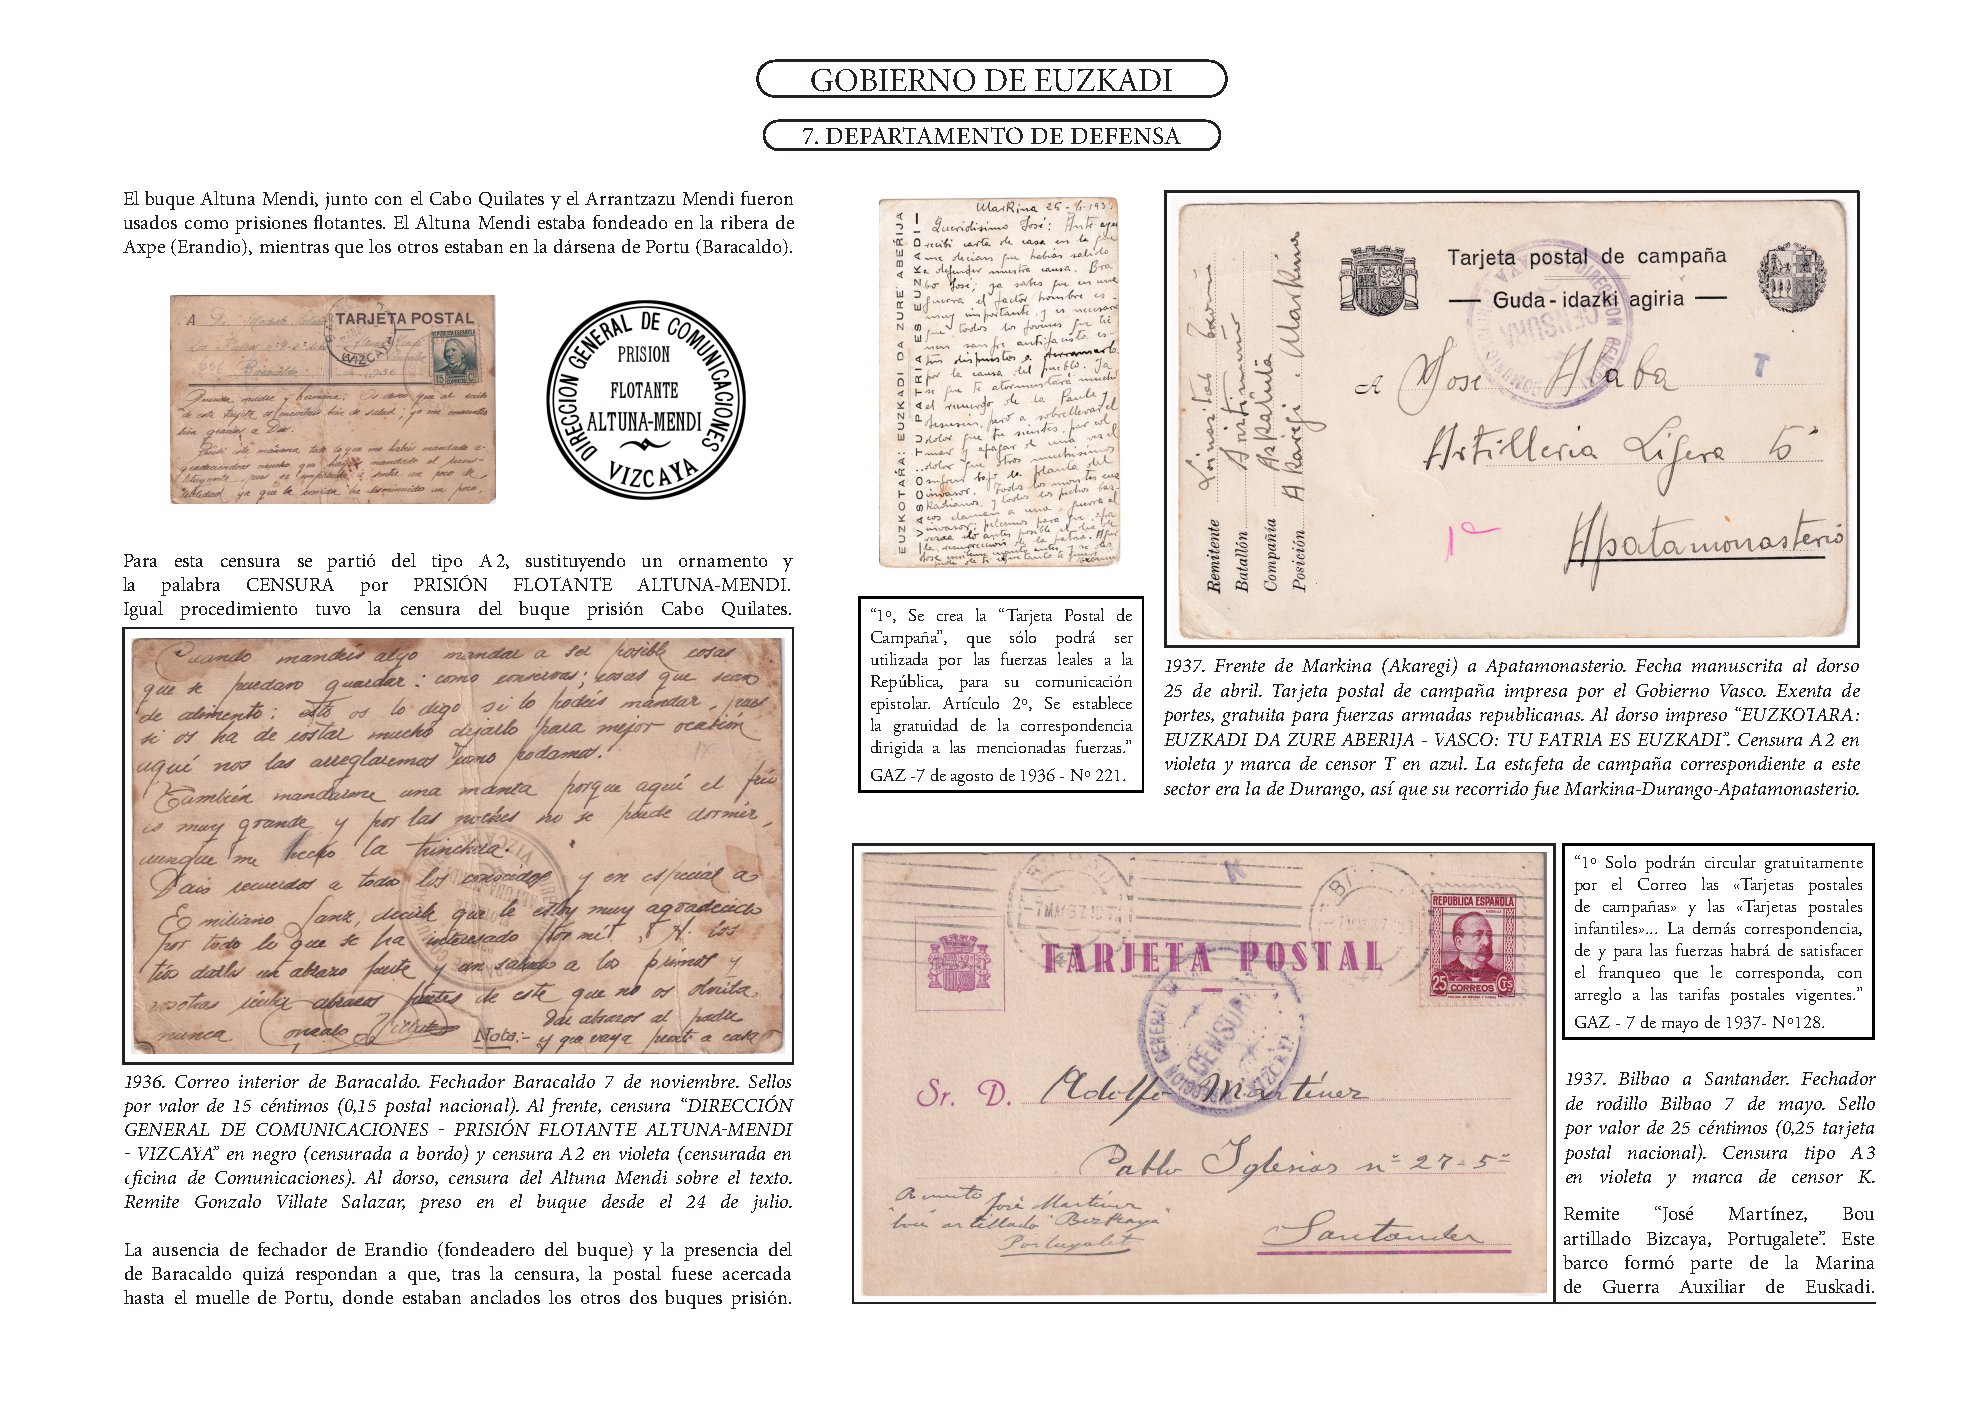 GOBIERNO DE EUZKADI
7. DEPARTAMENTO DE DEFENSA
El buque Altuna Mendi, junto con el Cabo Quilates y el Arrantzazu Mendi fueron
usados como prisiones flotantes. El Altuna Mendi estaba fondeado en la ribera de
Axpe (Erandio), mientras que los otros estaban en la dársena de Portu (Baracaldo).
A
TARJETA POSTAL
REPUBLICA ESPAÑOLA
15 CTS
CORREOS
VIZCAYA
Baracaldo
DIRECCION GENERAL DE COMUNICACIONES
PRISION
FLOTANTE
ALTUNA-MENDI
VIZCAYA
Para esta censura se partió del tipo A2, sustituyendo un ornamento y
la palabra CENSURA por PRISIÓN FLOTANTE ALTUNA-MENDI.
Igual procedimiento tuvo la censura del buque prisión Cabo Quilates.
Cuando mandeis algo mandar a ser posible cosas
que se puedan guardar: como conservas; cosas que sean
de alimento: esto os lo digo si lo podéis mandar, pues
si os ha de costar mucho dejarlo para mejor ocasión
aquí nos las arreglaremos como podamos.
También mandarme una manta porque aquí el frío
es muy grande y por las noches no se puede dormir,
aunque me hecho la trinchera.
Dais recuerdos a todos los conocidos y en especial a
Emiliano Sanz, decirle que le estoy muy agradecido
por todo lo que se ha interesado por mi. A los
tíos darles un abrazo fuerte y un saludo a los primos y
vosotras recibir abrazos fuertes de este que no os olvida
nunca Gonzalo Villate Nota:-
Dar abrazos al padre
y que vaya pronto a casa
1936. Correo interior de Baracaldo. Fechador Baracaldo 7 de noviembre. Sellos
por valor de 15 céntimos (0,15 postal nacional). Al frente, censura “DIRECCIÓN
GENERAL DE COMUNICACIONES - PRISIÓN FLOTANTE ALTUNA-MENDI
- VIZCAYA” en negro (censurada a bordo) y censura A2 en violeta (censurada en
oficina de Comunicaciones). Al dorso, censura del Altuna Mendi sobre el texto.
Remite Gonzalo Villate Salazar, preso en el buque desde el 24 de julio.
La ausencia de fechador de Erandio (fondeadero del buque) y la presencia del
de Baracaldo quizá respondan a que, tras la censura, la postal fuese acercada
hasta el muelle de Portu, donde estaban anclados los otros dos buques prisión.
EUZKOTAŔA: EUZKADI DA ZURE ABEŔIJA
VASCO: TU PATRIA ES EUZKADI
Markina 25-4-1937
Queridisimo José: Ante ayer
recibi carta de casa en la que
me decian que habias salido
a defender nuestra causa. Bra
bo José; ya sabes que en una
guerra el factor hombre es
muy importante y es necesario
que todos los jovenes que tie
nen sangre antifacista es-
tén dispuestos a derramarla
por la causa del pueblo. Ya
“1º, Se crea la “Tarjeta Postal de
Campaña”, que sólo podrá ser
utilizada por las fuerzas leales a la
República, para su comunicación
epistolar. Artículo 2º, Se establece
la gratuidad de la correspondencia
dirigida a las mencionadas fuerzas.”
GAZ -7 de agosto de 1936 - Nº 221.
Tarjeta postal de campaña
Guda-idazki agiria
CENSURA
A Jose Ababa
T
Artilleria Ligera 5º
Apatamonasterio
Remitente
Batallón
Compañía Azkatuta
Posición Akaregi. Markina
1937. Frente de Markina (Akaregi) a Apatamonasterio. Fecha manuscrita al dorso
25 de abril. Tarjeta postal de campaña impresa por el Gobierno Vasco. Exenta de
portes, gratuita para fuerzas armadas republicanas. Al dorso impreso “EUZKOTARA:
EUZKADI DA ZURE ABERIJA - VASCO: TU PATRIA ES EUZKADI”. Censura A2 en
violeta y marca de censor T en azul. La estafeta de campaña correspondiente a este
sector era la de Durango, así que su recorrido fue Markina-Durango-Apatamonasterio.
K
7 MAY 37
REPUBLICA ESPAÑOLA
25 CTS
CORREOS
TARJETA POSTAL
CENSURA
Sr. D. Adolfo Martínez
Pablo Iglesias nº 27-5º
Remite José Martínez
Bou artillado "Bizkaya"
Portugalete
Santander
“1º Solo podrán circular gratuitamente
por el Correo las «Tarjetas postales
de campañas» y las «Tarjetas postales
infantiles»... La demás correspondencia,
de y para las fuerzas habrá de satisfacer
el franqueo que le corresponda, con
arreglo a las tarifas postales vigentes.”
GAZ - 7 de mayo de 1937- Nº128.
1937. Bilbao a Santander. Fechador
de rodillo Bilbao 7 de mayo. Sello
por valor de 25 céntimos (0,25 tarjeta
postal nacional). Censura tipo A3
en violeta y marca de censor K.
Remite “José Martínez, Bou
artillado Bizcaya, Portugalete”. Este
barco formó parte de la Marina
de Guerra Auxiliar de Euskadi.